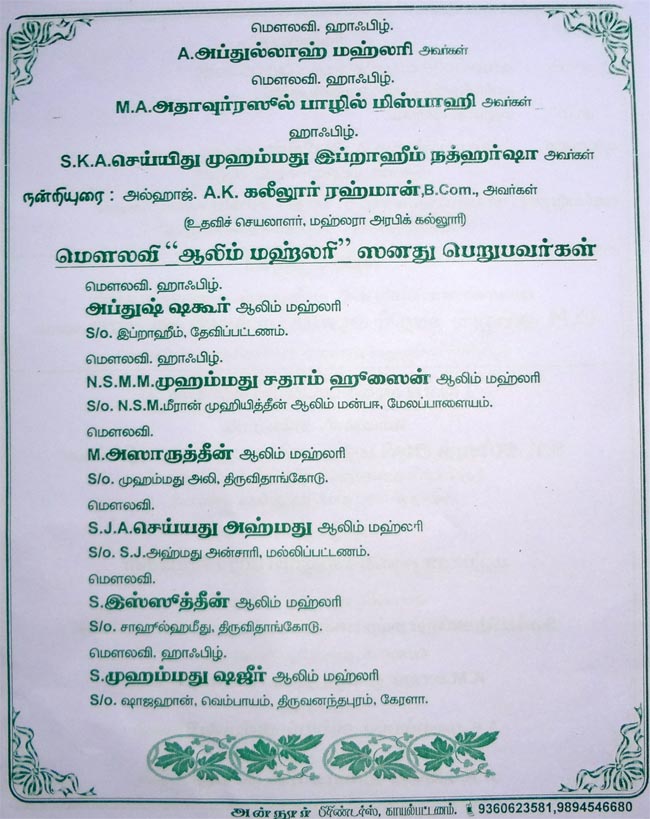 மௌலவி. ஹாஃபிழ்.
A.அப்துல்லாஹ் மஹ்லரி அவர்கள்
மௌலவி. ஹாஃபிழ்.
M.A.அதாவுர்ரஸூல் பாழில் மிஸ்பாஹி அவர்கள்
ஹாஃபிழ்.
S.K.A.செய்யிது முஹம்மது இப்றாஹீம் நத்ஹர்ஷா அவர்கள்
நன்றியுரை : அல்ஹாஜ். A.K. கலீலூர் ரஹ்மான்,B.Com., அவர்கள்
(உதவிச் செயலாளர், மஹ்லரா அரபிக் கல்லூரி)
மௌலவி "ஆலிம் மஹ்லரி" ஸனது பெறுபவர்கள்
மௌலவி. ஹாஃபிழ்.
அப்துஷ் ஷகூர் ஆலிம் மஹ்லரி
S/o. இப்றாஹீம், தேவிப்பட்டணம்.
மௌலவி. ஹாஃபிழ்.
N.S.M.M.முஹம்மது சதாம் ஹூஸைன் ஆலிம் மஹ்லரி
S/o. N.S.M.மீரான் முஹியித்தீன் ஆலிம் மன்பஈ, மேலப்பாளையம்.
மௌலவி.
M.அஸாருத்தீன் ஆலிம் மஹ்லரி
S/o. முஹம்மது அலி, திருவிதாங்கோடு.
மௌலவி.
S.J.A.செய்யது அஹ்மது ஆலிம் மஹ்லரி
S/o. S.J.அஹ்மது அன்சாரி, மல்லிப்பட்டணம்.
மௌலவி.
S.இஸ்ஸூத்தீன் ஆலிம் மஹ்லரி
S/o. சாஹூல்ஹமீது, திருவிதாங்கோடு.
மௌலவி. ஹாஃபிழ்.
S.முஹம்மது ஷஜீர் ஆலிம் மஹ்லரி
S/o. ஷாஜஹான், வெம்பாயம், திருவனந்தபுரம், கேரளா.
அன்நூர் பிரிண்டர்ஸ், காயல்பட்டணம். 9360623581,9894546680